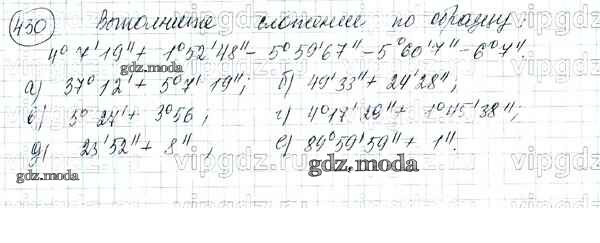 430 Выполните сложение по образцу:
4° 7' 19" + 1° 52' 48" - 5° 59' 67" - 5° 60' 7" - 6° 7".
а) 37° 12' + 5° 7' 19"; б) 49' 33" + 24' 28";
в) 5° 27' + 3° 56'; г) 4° 17' 29" + 1° 45' 38";
д) 23' 52" + 8"; е) 89° 59' 59" + 1".
gdz.moda
gdz.moda